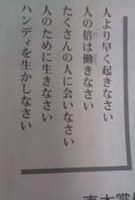 人より早く起きなさい
人の倍は働きなさい
たくさんの人に会いなさい
人のために生きなさい
ハンディを生かしなさい